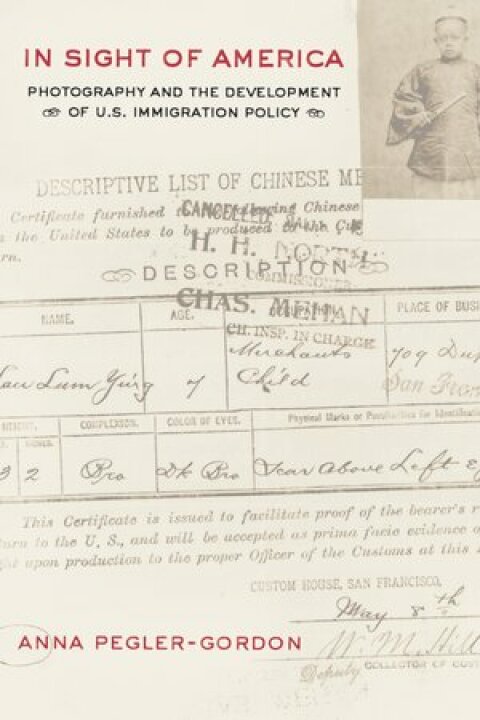 IN SIGHT OF AMERICA
PHOTOGRAPHY AND THE DEVELOPMENT
OF U.S. IMMIGRATION POLICY
DESCRIPTIVE LIST OF CHINESE ME
Certificate furnished Chinese
the United States to be produced to the Cu
rn.
CANCELLED
H. H. NORTH
COMMISSIONER
DESCRIPTION
CHAS. MEHAN
CH. INSP. IN CHARGE
NAME. AGE. PLACE OF BUSI
Lum Ying 7 Merchants 709 Du
Child San Fran
COMPLEXION. COLOR OF EYES. Physical Marks or Peculiarities for Identificatio
3 2 Bro Dk Bro Scar Above Left Ey
This Certificate is issued to facilitate proof of the bearer's r
turn to the U. S., and will be accepted as prima facie evidence o
ght upon production to the proper Officer of the Customs at this
CUSTOM HOUSE, SAN FRANCISCO,
May 8th
ANNA PEGLER-GORDON
W. M. Hill
Deputy COLLECTOR OF CUST